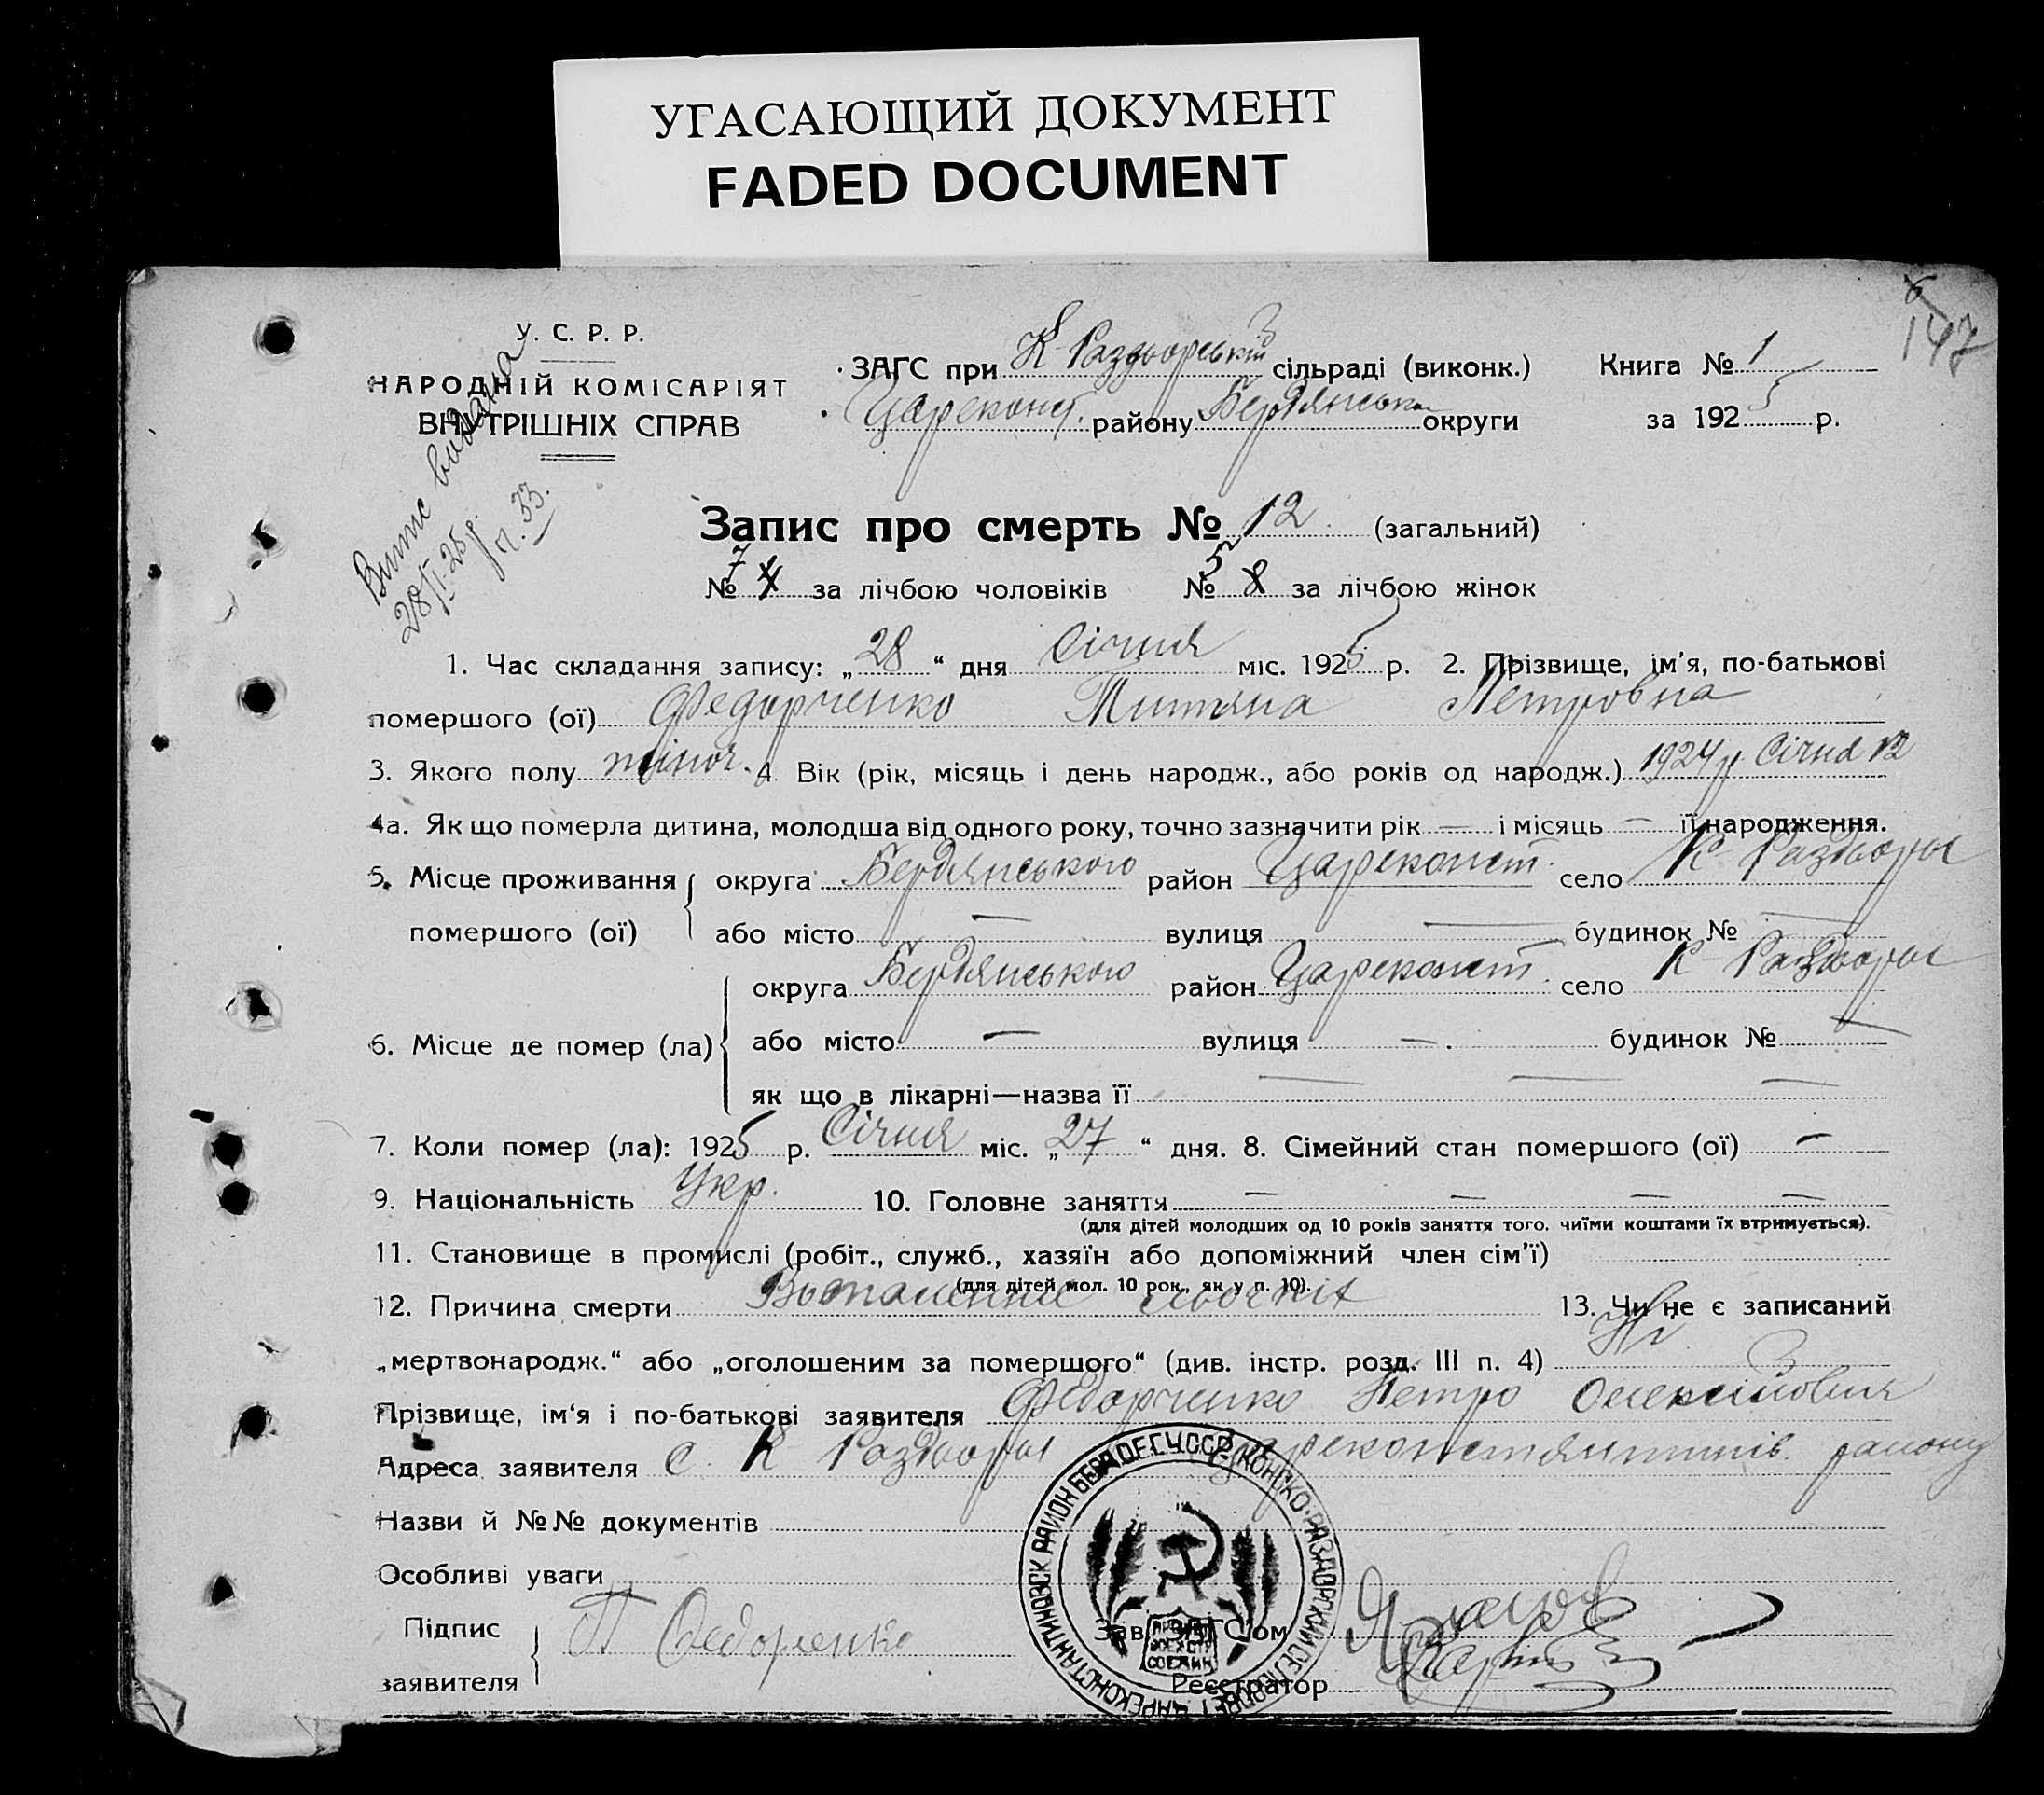 УГАСАЮЩИЙ ДОКУМЕНТ
FADED DOCUMENT
147
У. С. Р. Р.
НАРОДНІЙ КОМІСАРІЯТ
ВНУТРІШНІХ СПРАВ
Витяс видана
28/I-25 р. п. 33.
ЗАГС при К-Раздорській сільраді (виконк.) Книга № 1
Цареконст. району Бердянськ округи за 1925 р.
Запис про смерть № 12. (загальний)
№ 7 4 за лічбою чоловіків № 5 8 за лічбою жінок
1. Час складання запису: „28“ дня Січня міс. 1925 р. 2. Прізвище, ім'я, по-батькові
помершого (ої) Федорченко Петровна
3. Якого полу жіноч. 4. Вік (рік, місяць і день народж., або років од народж.) 1924 р. Січня 12
4а. Як що померла дитина, молодша від одного року, точно зазначити рік — і місяць — її народження.
5. Місце проживання округа Бердянського район Цареконст. село К-Раздоры
помершого (ої) або місто — вулиця — будинок № —
округа Бердянського район Цареконст. село К-Раздоры
6. Місце де помер (ла) або місто — вулиця — . будинок № —
як що в лікарні—назва її — — —
7. Коли помер (ла): 1925 р. Січня міс. „27“ дня. 8. Сімейний стан помершого (ої) —
9. Національність Укр. 10. Головне заняття — — — —
(для дітей молодших од 10 років заняття того, чиїми коштами їх втримується).
11. Становище в промислі (робіт., служб., хазяїн або допоміжний член сім'ї)
(для дітей мол. 10 рок., як у п. 10).
12. Причина смерти 13. Чи не є записаний
„мертвонародж.“ або „оголошеним за помершого“ (див. інстр. розд. III п. 4) Ні
Прізвище, ім'я і по-батькові заявителя Федорченко Петро Олексійович
Адреса заявителя с. К-Раздоры Цареконстянтинів. району
Назви й №№ документів
Особливі уваги
Підпис
заявителя П Федорченко
Зав. ЗАГС'ом
Реєстратор
ЦАРЕКОНСТАНТИНОВСК РАЙОН БЕРД ОК УССР КОНСКО-РАЗДОРСКИЙ СЕЛЬСОВЕТ